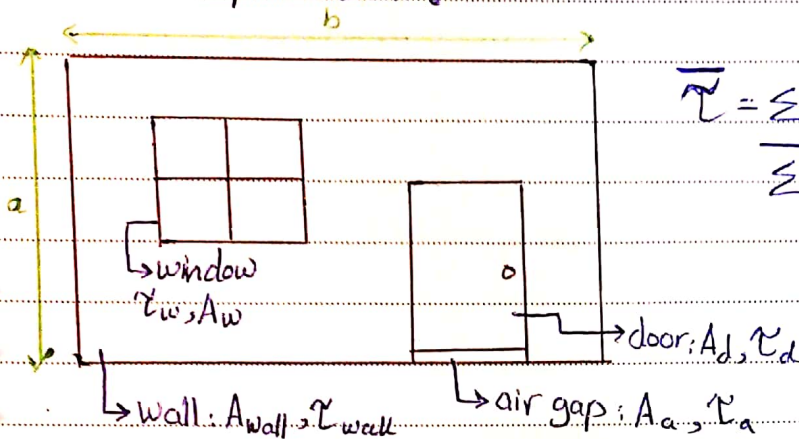 b
τ̄ = Σ
Σ
a
window
τw, Aw
door: Ad, τd
wall: Awall, τwall
air gap: Aa, τa